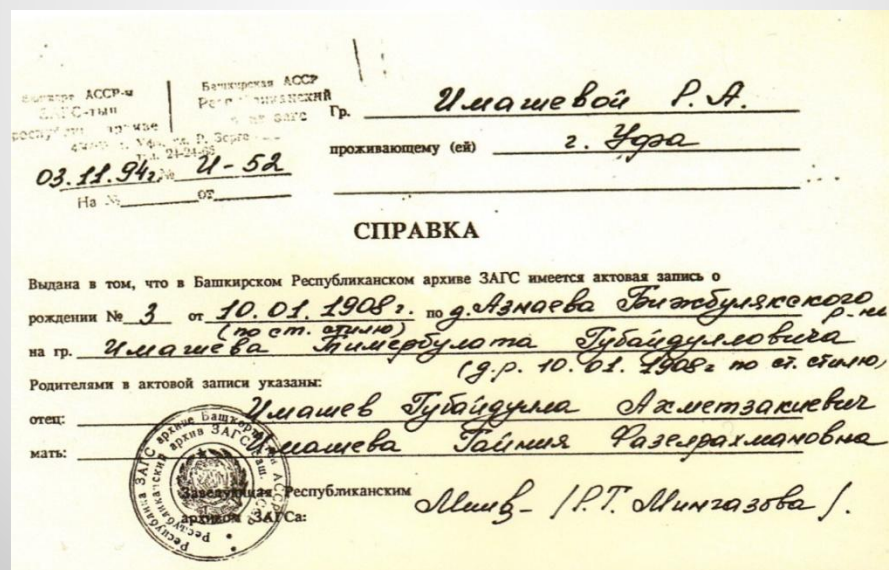 АССР-м
ЗАГС-тың
Башкирская АССР
Республиканский
архив загс
Тел. 24-24-66
03.11.94г. № И-52
На № от
Гр. Имашевой Р. А.
проживающему (ей) г. Уфа
СПРАВКА
Выдана в том, что в Башкирском Республиканском архиве ЗАГС имеется актовая запись о
рождении № 3 от 10.01.1908 г. по д. Азнаева Бижбулякского р-на
(по ст. стилю)
на гр. Имашева Тимербулата Губайдулловича
(д.р. 10.01.1908г по ст. стилю)
Родителями в актовой записи указаны:
отец: Имашев Губайдулла Ахметзакиевич
мать: Имашева Гайния Фазелрахмановна
Заведующая Республиканским
архивом ЗАГСа: /Р.Т. Мингазова/.
Республиканский архив ЗАГС